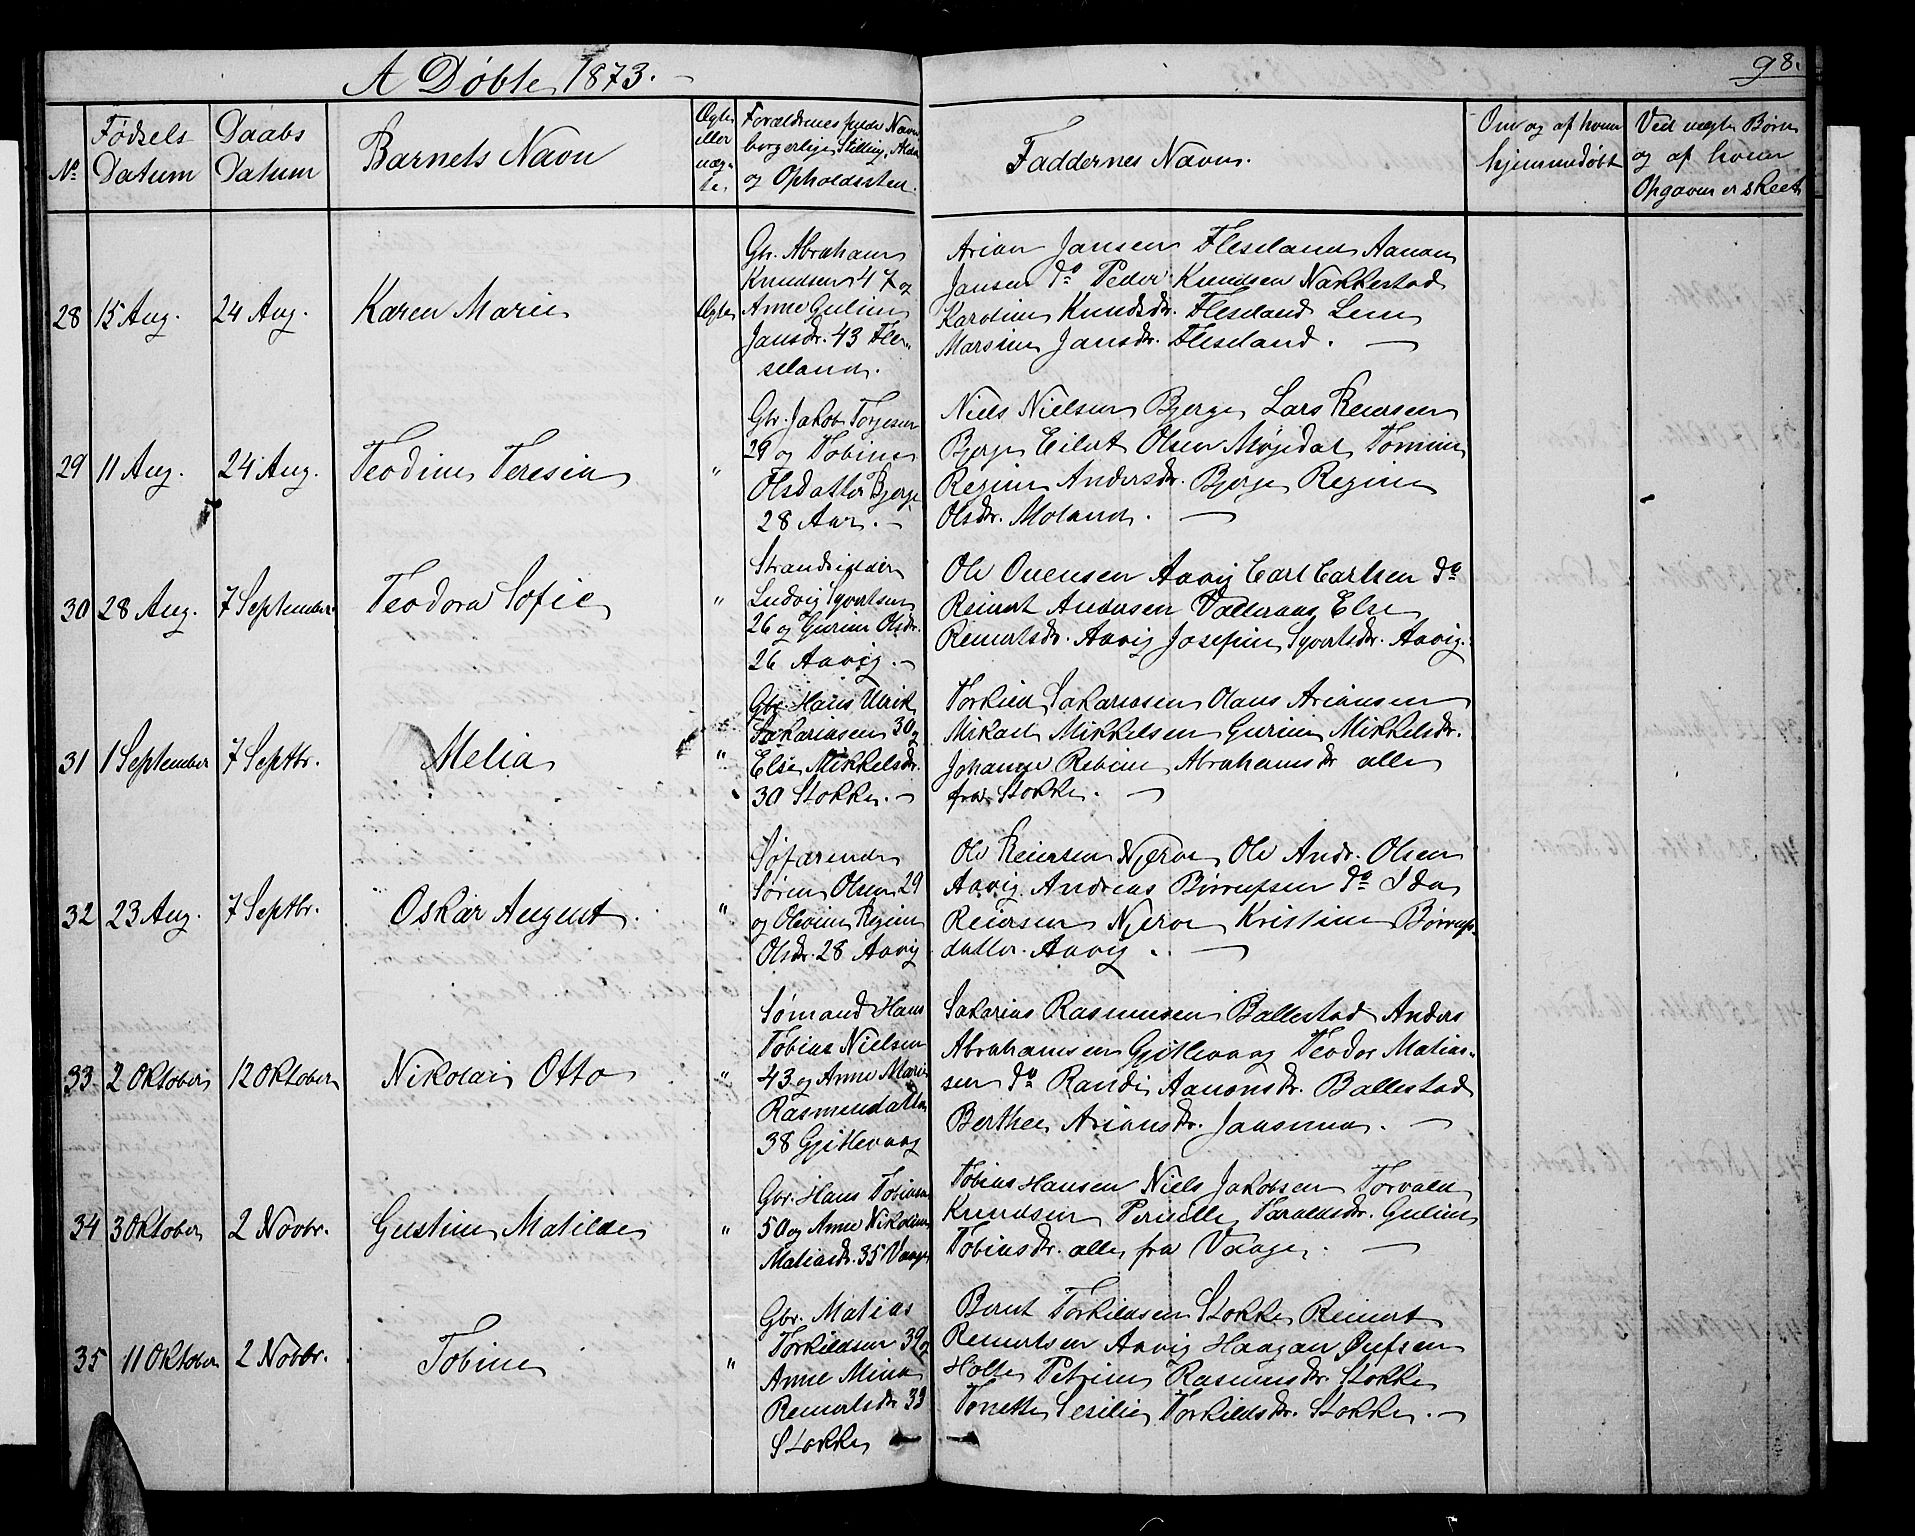 A Døbte 1873.
98.
No
Fødsels Datum
Daabs Datum
Barnets Navn
Ægte eller uægte.
Forældrenes fulde Navn borgerlige Stilling, Alder og Opholdssted.
Faddernes Navn.
Om og af hvem hjemmedøbt
Ved uægte Børn og af hvem Opgaven er skeet
28
15 Aug.
24 Aug.
Karen Marie
Ægte
Gb. Abraham
Knudsen 47 og
Anne Guline
Jansdr. 43 Fles-
seland.
Arian Jansen Fleseland Aanon
Jansen do Peder Knudsen Nakkestad
Karoline Knudsdr. Fleseland Lene
Marsine Jansdr. Fleseland.
29
11 Aug.
24 Aug.
Teodine Teresia
"
Gbr. Jakob Torjesen
29 og Tobine
Olsdatter Bjerge
28 Aar.
Niels Nielsen Bjerge Lars Reiersen
Bjerge Eilert Olsen Møgedal Tomine
Regine Andersdr. Bjerge Regine
Olsdr. Moland.
30
28 Aug.
7 September
Teodora Sofie
"
Strandsidder
Ludvig Syvertsen
26 og Gurine Olsdr.
26 Aavig.
Ole Ouensen Aavig Carl Carlsen do
Reinert Andersen Valleraas Else
Reinertsdr. Aavig Josefine Syvertsdr. Aavig.
31
1 September
7 Septbr.
Melia
"
Gbr. Hans Ulrik
Sakariasen 30 og
Else Mikkelsdr.
30 Stokke.
Torkild Sakariasen Olaus Ariansen
Mikael Mikkelsen Gurine Mikkelsdr.
Johanne Rebine Abrahamsdr alle
fra Stokke.
32
23 Aug.
7 Septbr.
Oskar August.
"
Søfarende
Søren Olsen 29
og Olevine Regine
Olsdr. 28 Aavig
Ole Reiersen Njerve Ole Andr. Olsen
Aavig Andreas Børrufsen do Ida
Reiersen Njerve Kristine Børrufs-
datter Aavig.
33
2 Oktober
12 Oktober
Nikolai Otto
"
Sømand Hans
Tobias Nielsen
43 og Anne Marie
Rasmusdatter
38 Gjitlevaag
Sakarias Rasmussen Ballestad Anders
Abrahamsen Gjitlevaag Teodor Matias-
sen do Randi Aanonsdr. Ballestad
Berthe Ariansdr. Jaasund.
34
3 Oktober
2 Novbr.
Gustine Matilde
"
Gbr. Hans Tobiasen
50 og Anne Nikoline
Matiasdr. 35 Vaage
Tobias Hansen Niels Jakobsen Torvald
Knudsen Pernille Haraldsdr. Guline
Tobiasdr. alle fra Vaage.
35
11 Oktober
2 Novbr.
Tobine
"
Gbr. Matias
Torkildsen 39 og
Anne Mina
Reinertsdr 33
Stokke
Bernt Torkildsen Stokke Reinert
Reinertsen Aavig Haagan Øufsen
Holte Petrine Rasmusdr. Stokke
Tonette Sesilie Torkildsdr. Stokke.